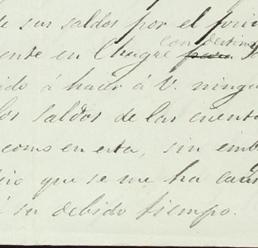 e sus saldos por el
con destino
ente en Chagre para
ido á hacer á V. ningu
los saldos de las cuenta
como en esta, sin emb
cio que se me ha caus
á su debido tiempo.